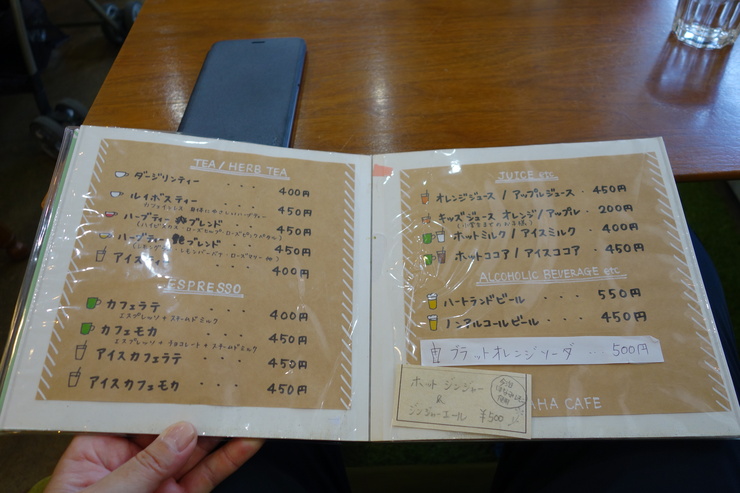 TEA / HERB TEA
ダージリンティー ・・・ 400円
ルイボスティー ・・・ 450円
ハーブティー ブレンド ・・・ 450円
ハーブティー ブレンド ・・・ 450円
アイスティー 400円
ESPRESSO
カフェラテ ・・・ 400円
エスプレッソ + スチームドミルク
カフェモカ ・・・ 450円
エスプレッソ + チョコレート + スチームドミルク
アイスカフェラテ ・・・ 450円
アイスカフェモカ ・・・ 450円
JUICE etc.
オレンジジュース / アップルジュース ・ 450円
キッズジュース オレンジ / アップル ・・ 200円
ホットミルク / アイスミルク ・・ 400円
ホットココア / アイスココア ・・ 450円
ALCOCHOLIC BEVERAGE etc.
ハートランドビール ・・・ 550円
ノンアルコールビール ・・・ 450円
ブラットオレンジソーダ ・・・ 500円
ホット ジンジャー
&
ジンジャーエール ¥500
AHA CAFE